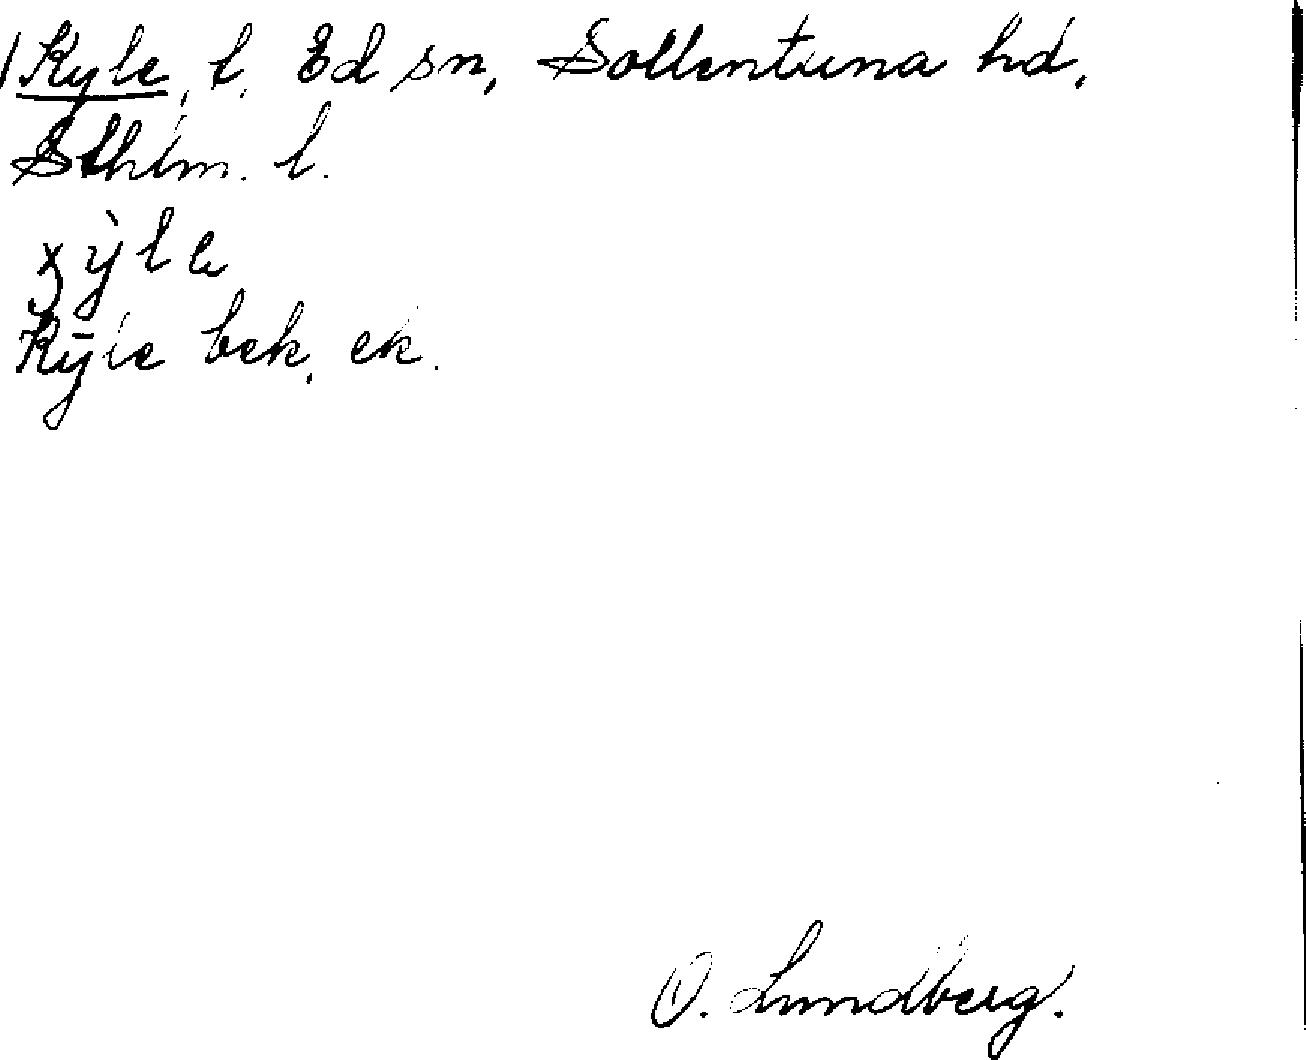 Kyle, t. Ed sn, Sollentuna hd,
Sthlm. l.
Kyle bek. ek.
O. Lundberg.